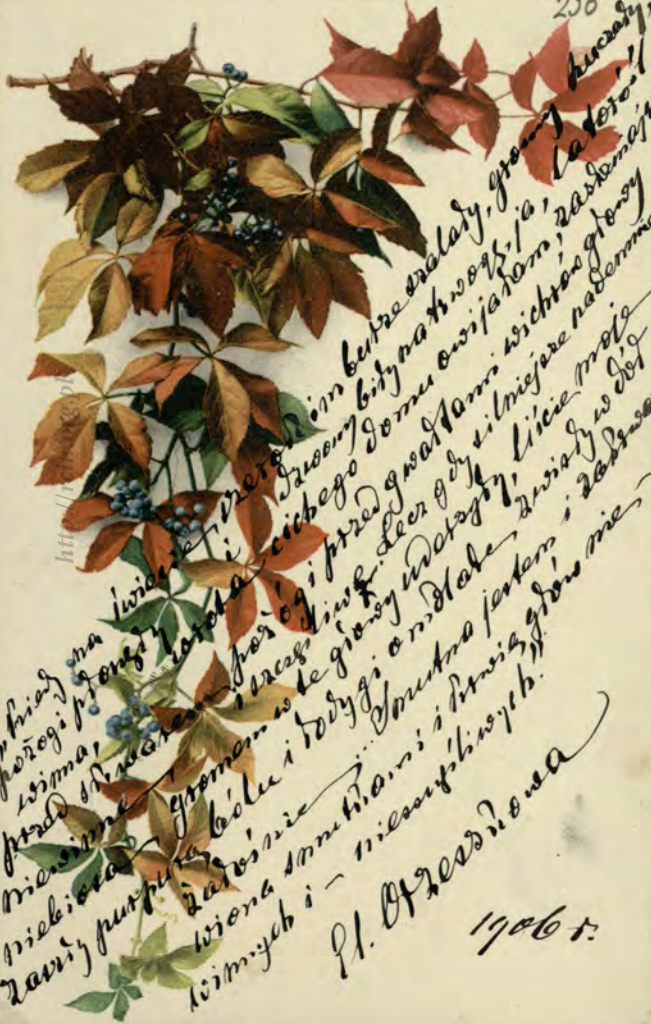 230
„Kiedy na świecie szerokim burze szalały, gromy huczały,
pożogi płonęły i dzwony biły na trwogę, ja, latorośl
winna, wrota cichego domu owijałam, zasłaniając
przed skwarem pożogi przed gwałtami wichrów głowy
niewinne i szczęśliwe. Lecz gdy silniejsze nademną
niebiosa gromem w te głowy uderzyły, liście moje
zaszły purpurą bólu i łodygi omdlałe zwisły w dół
żałośnie... Smutna jestem i zabar-
wiona smutkami i krwią głów nie-
winnych i – nieszczęśliwych."
El. Orzeszkowa
1906 r.
http://rcin.org.pl